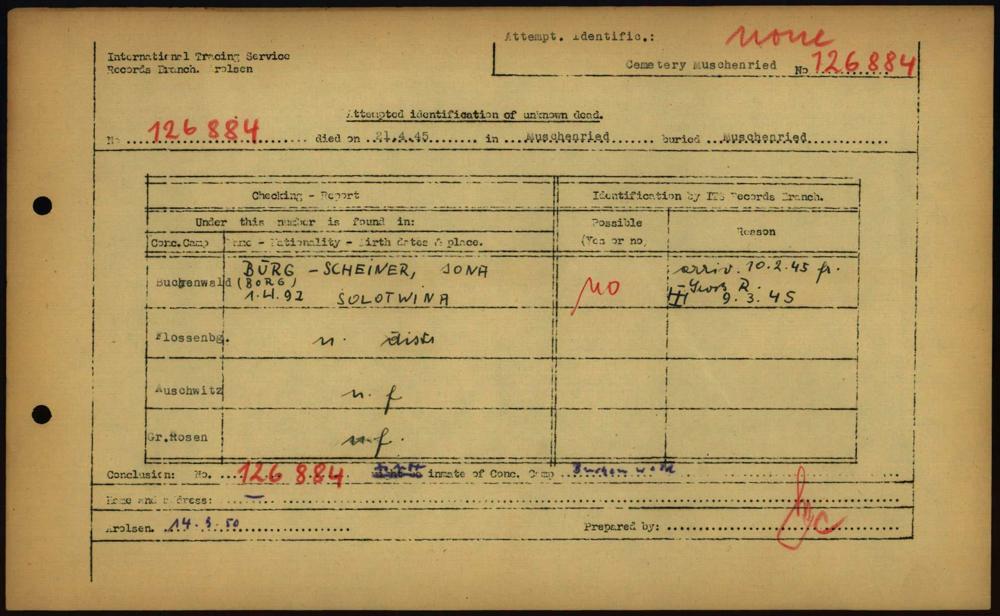 Attempt. Identific.: none
International Tracing Service
Records Branch. Arolsen
Cemetery Muschenried No 126884
Attempted identification of unknown dead.
No 126884 died on 21.4.45 in Muschenried buried Muschenried
Checking - Report
Identification by ITS Records Branch.
Under this number is found in:
Possible
(Yes or no)
Reason
Conc.Camp
Name - Nationality - Birth dates & place.
Buchenwald
BÜRG - SCHEINER, JONA
(BORG)
SOLOTWINA
no
arriv. 10.2.45 fr.
Gross R.
9.3.45
Flossenbg.
n.
Auschwitz
n.f
Gr.Rosen
n.f.
Conclusion: No. 126 884 inmate of Conc. Camp Buchenwald
Name and address:
Arolsen. 14.3.50
Prepared by: